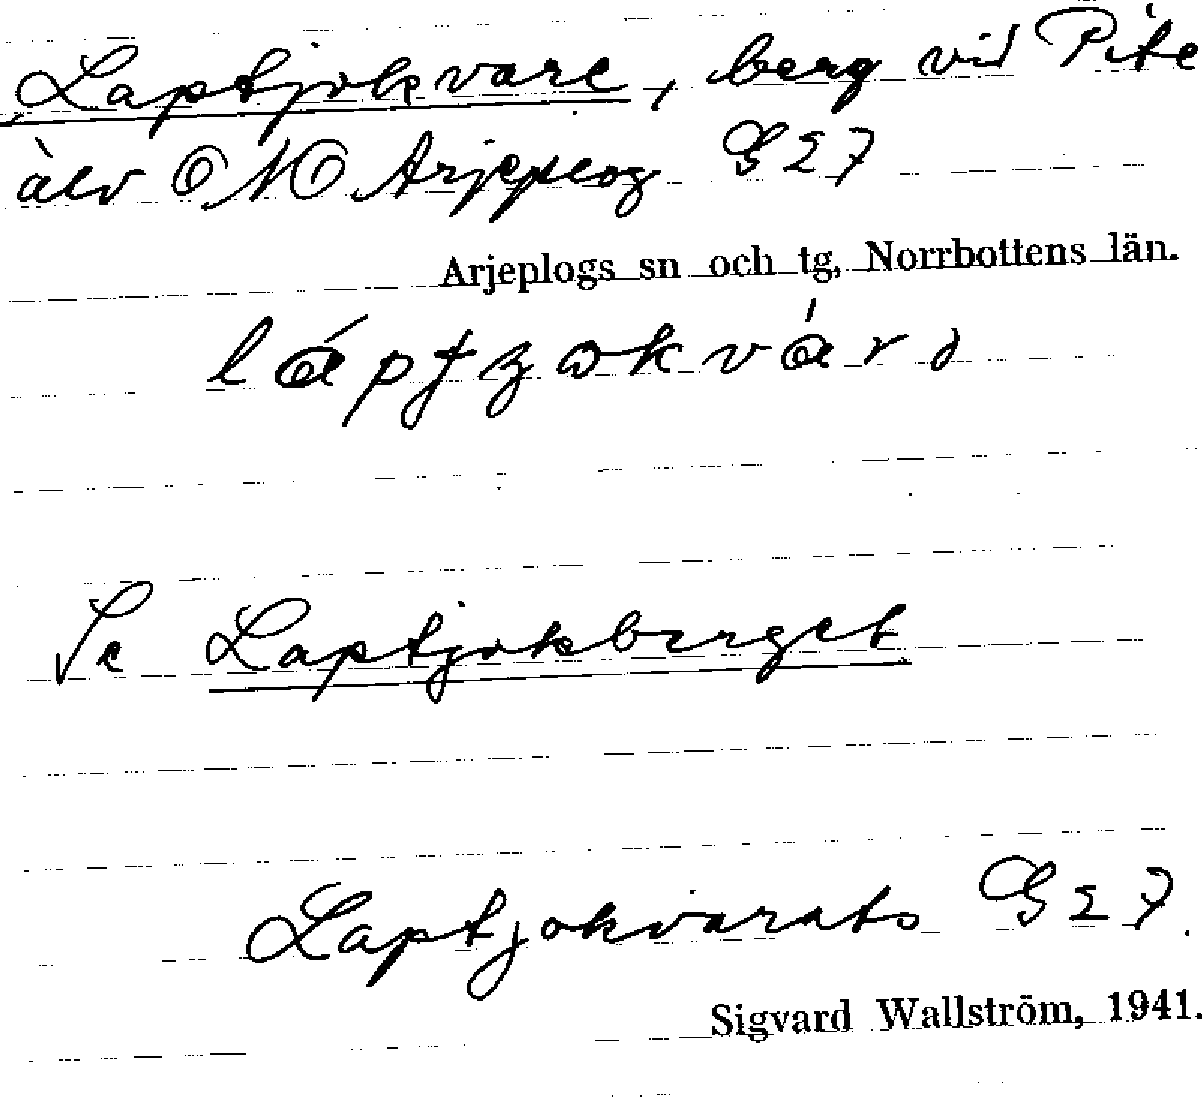 Laptjokvare, berg vid Pite
älv ONO Arjeplog G27
Arjeplogs sn och tg, Norrbottens län.
Se Laptjokberget
Laptjokvarats G27.
Sigvard Wallström, 1941.